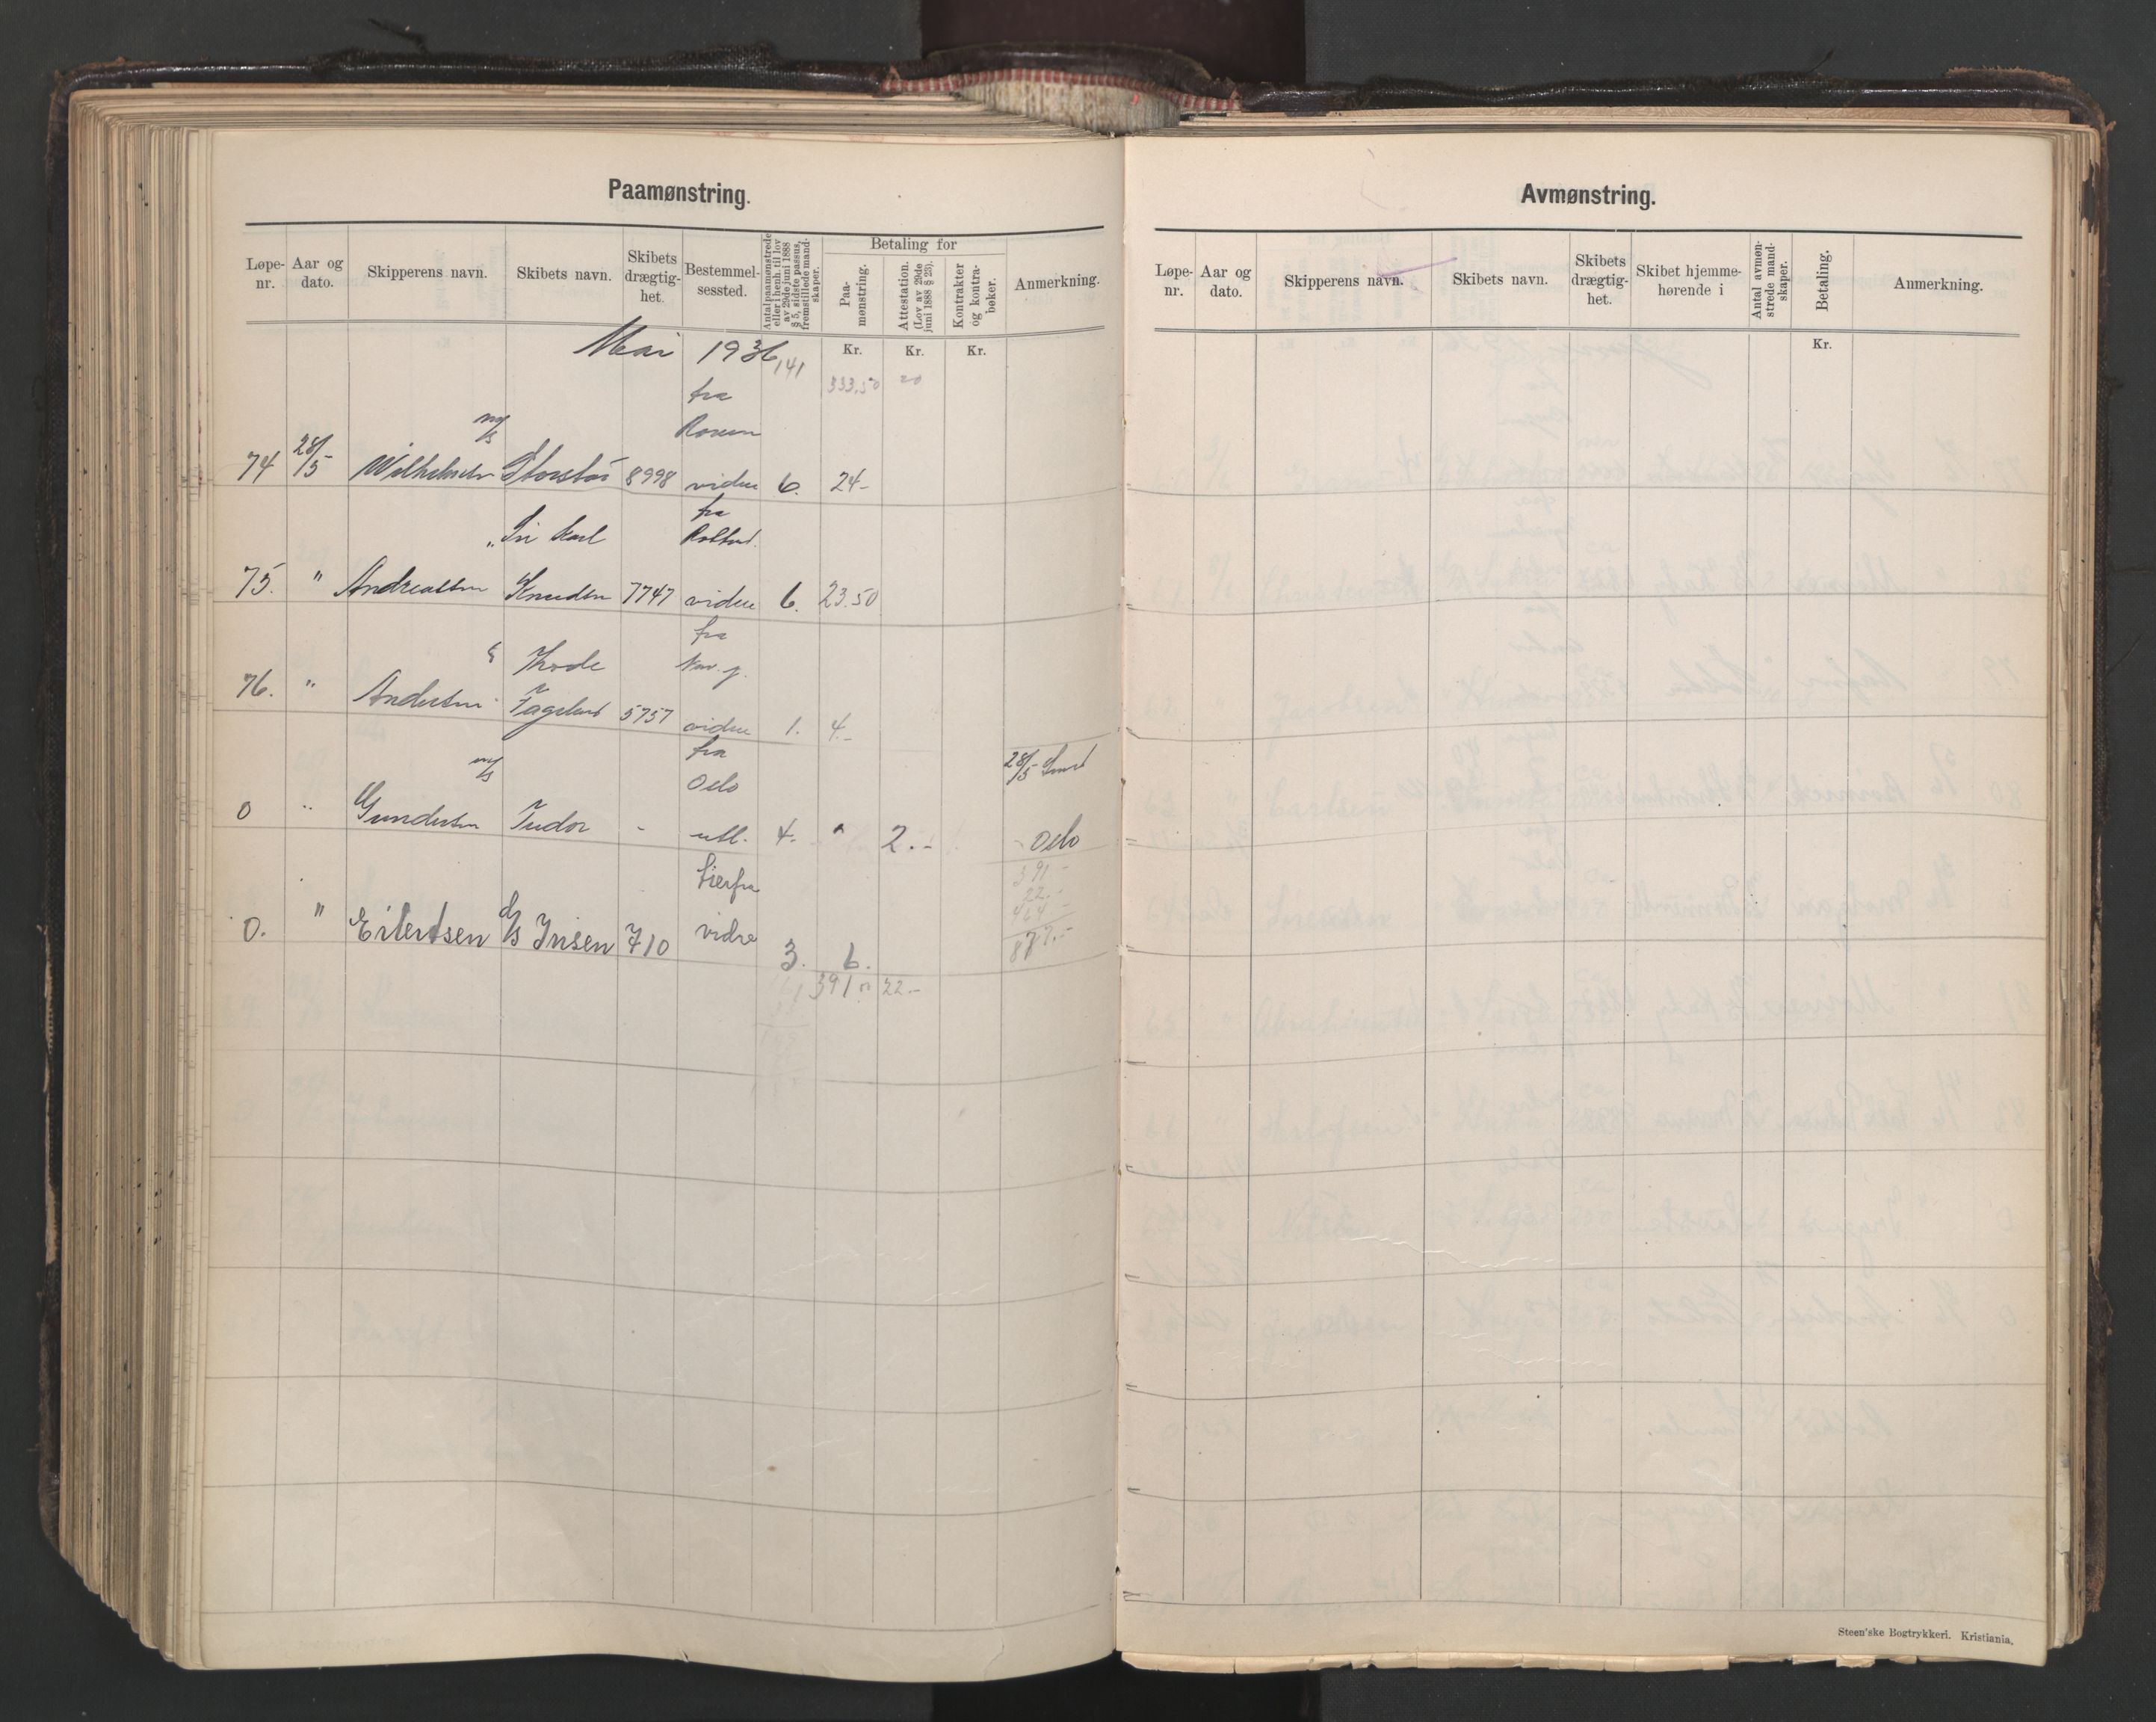 Paamønstring.
Løpe-nr.
Aar og dato.
Skipperens navn.
Skibets navn.
Skibets drægtig-het.
Bestemmel-sessted.
Antal paamønstrede eller i henh. til lov av 29de juni 1888 § 5, sidste passus, fremstillede mand-skaper.
Betaling for
Paa-mønstring.
Attestation. (Lov av 29de juni 1888 § 23).
Kontrakter og kontra-bøker.
Anmerkning.
Mai 1936 141 Kr. Kr. Kr.
fra 333.50 20
m/s
74 28/5 Wilhelmsen 8998 vidre 6. 24-
fra
75. " Andreassen Knudsen 7747 vidre 6. 23.50
fra
76. " Andersen 5757 vidre 1. 4.-
m/s fra
Oslo 28/5
0 " Gundersen Tudor - utl. 4. " 2.- - Oslo
herfra 391.-
22.-
464.-
0. " Eilertsen d/s Jrisen 710 vidre 3. 6. 877.-
391 " 22.-
Avmønstring.
Løpe-nr.
Aar og dato.
Skipperens navn.
Skibets navn.
Skibets drægtig-het.
Skibet hjemme-hørende i
Antal avmøn-strede mand-skaper.
Betaling.
Anmerkning.
Kr.
Steen'ske Bogtrykkeri. Kristiania.